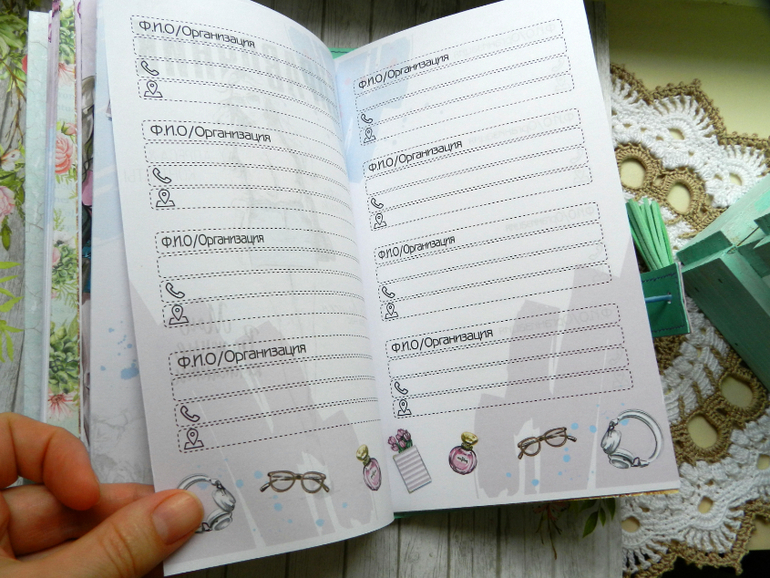 Ф.И.О/Организация
Ф.И.О/Организация
Ф.И.О/Организация
Ф.И.О/Организация
Ф.И.О/Организация
Ф.И.О/Организация
Ф.И.О/Организация
Ф.И.О/Организация